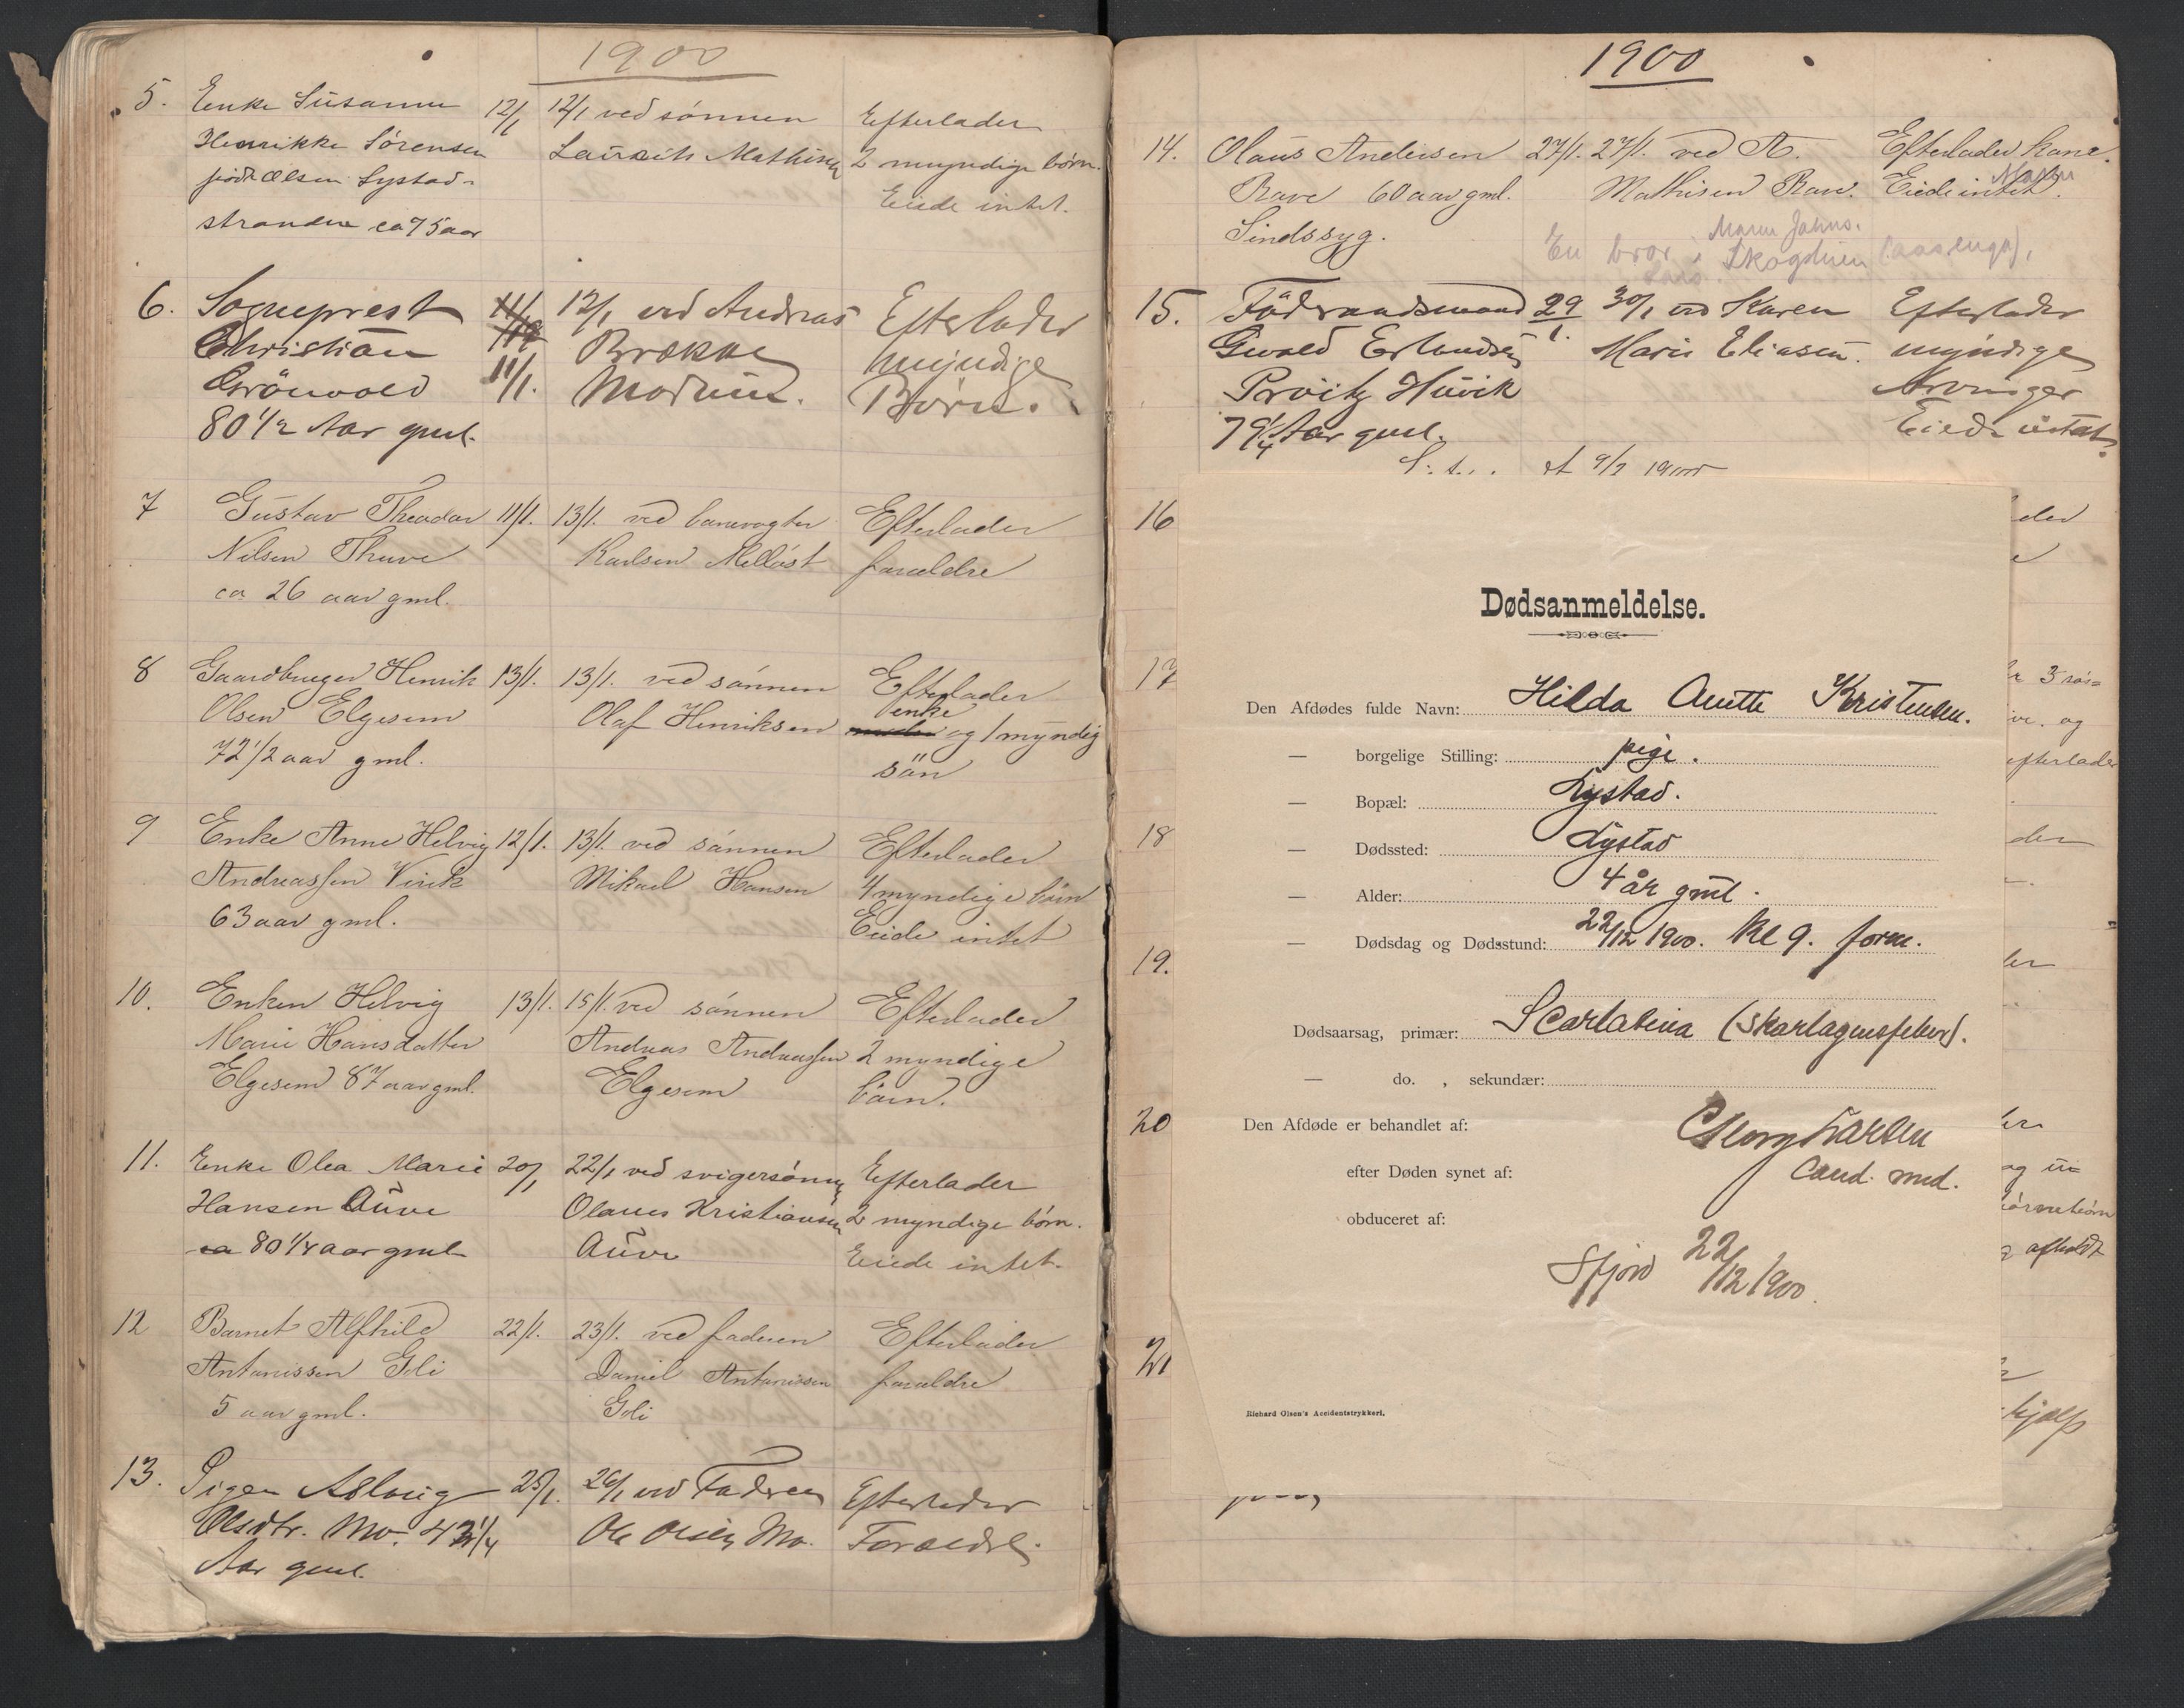 1900
5. Enke Susanne 12/1 12/1 ved sønnen Efterlader
Henrikke Sørensen Lauritz Mathisen 2 myndige børn.
født Olsen Lystad- Eiede intet.
strandene ca 75 aar
6. Sogneprest 11/1 12/1 ved Andreas Efterlader
Christian Brække myndige
Grönvold 11/1. Modum. Børn.
80 1/2 Aar gml.
7 Gustav Theodor 11/1. 13/1. ved banevogter Efterlader
Nilsen Thuve Karlsen Melløst forældre
ca 26 aar gml.
8 Gaardbruger Henrik 13/1. 13/1. ved sønnen Efterlader
Olsen Elgesem Olaf Henriksen enke og 1 myndig
72 1/2 aar gml. søn
9 Enke Anne Helvig 12/1. 13/1. ved sønnen Efterlader
Andreassen Virik Mikael Hansen 4 myndige børn
63 aar gml. Eiede intet
10. Enken Helvig 13/1. 15/1. ved sønnen Efterlader
Marie Hansdatter Andreas Andreassen 2 myndige
Elgesem 87 aar gml. Elgesem børn.
11. Enke Olea Marie 20/1 22/1 ved svigersønnen Efterlader
Hansen Auve Olaves Kristiansen 2 myndige børn.
ca 80 1/4 aar gml Auve Eiede intet.
12 Barnet Alfhild 22/1. 23/1. ved faderen Efterlader
Antonissen Goli Daniel Antonissen forældre
5 aar gml. Goli
13. Pigen Aslaug 25/1. 26/1 ved Faderen Efterlader
Olsdtr. Mo. 4 1/4 Ole Olsen Mo. Forældre.
Aar gml.
1900
14. Olaus Andersen 27/1. 27/1. ved A. Efterlader kone.
Rave 60 aar gml. Mathisen Rave. Eiede intet.
Sindssyg. Maren Johns.
En bror i Skogstuen (aasenga),
15. Födraadsmand 29/1. 30/1 ved Karen Efterlader
Ewald Erlandsen Marie Eliasen. myndige
Pröitz Huvik Arvinger
79 1/4 Aar gml. Eiede intet.
16
Dødsanmeldelse.
Den Afdødes fulde Navn: Hilda Anette Kristensen.
— borgelige Stilling: pige.
— Bopæl: Lystad.
— Dødssted: Lystad
— Alder: 4 år gml.
— Dødsdag og Dødsstund: 22/12 1900. Kl 9. form.
Dødsaarsag, primær: Scarlatina (Skarlagensfeber).
— do. , sekundær:
Den Afdøde er behandlet af: Georg Larsen
efter Døden synet af: Cand. med.
obduceret af:
Sfjord 22/12 1900.
Richard Olsen's Accidentstrykkeri.
17
18
19.
20
21
efterlader
og
afholdt
hjælp